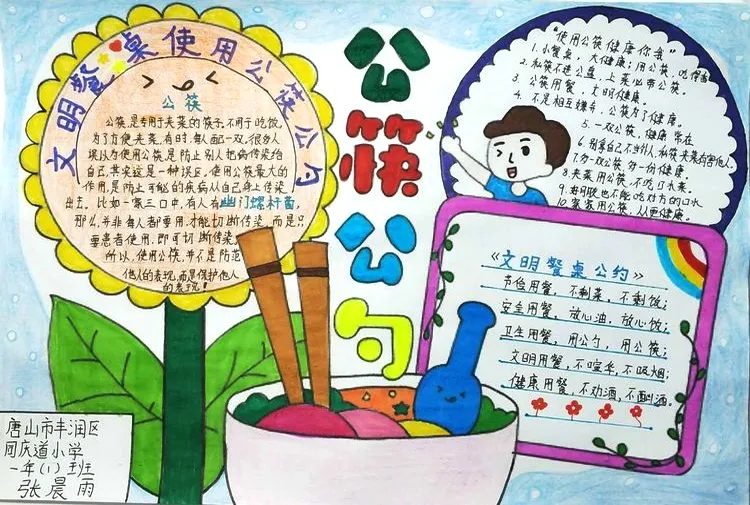 文明餐桌使用公筷公约
公筷
公筷,是专用于夹菜的筷子,不用于吃饭,
为了方便夹菜,有时,每人配一双,很多人
误以为使用公筷,是防止别人把病传染给
自己,其实这是一种误区,使用公筷最大的
作用,是防止可能的疾病从自己身上传染
出去。比如一家三口中,有人有幽门螺杆菌,
那么,并非每人都要用,才能切断传染,而是只
要患者使用,即可切断传染。
所以,使用公筷,并不是防范
他人的表现,而是保护他人
的表现。
公
筷
公
勺
"使用公筷健康你我"
1.小餐桌,大健康;用公筷,吃得香
2.私筷不进公盘,上菜必带公筷。
3.公筷用餐,文明健康。
4.不是相互嫌弃,公筷为了健康。
5.一双公筷,健康常在
6.别拿自己不当外人,私筷夹菜有害他人。
7.分一双公筷,分一份健康
8.夹菜用公筷,不吃口水菜。
9.好闺蜜也不能吃对方的口水
10.家宴用公筷,从更健康。
《文明餐桌公约》
节俭用餐,不剩菜,不剩饭;
安全用餐,放心油,放心饭;
卫生用餐,用公勺,用公筷;
文明用餐,不喧哗,不吸烟;
健康用餐,不劝酒,不酗酒。
唐山市丰润区
团庆道小学
一年(1)班
张晨雨